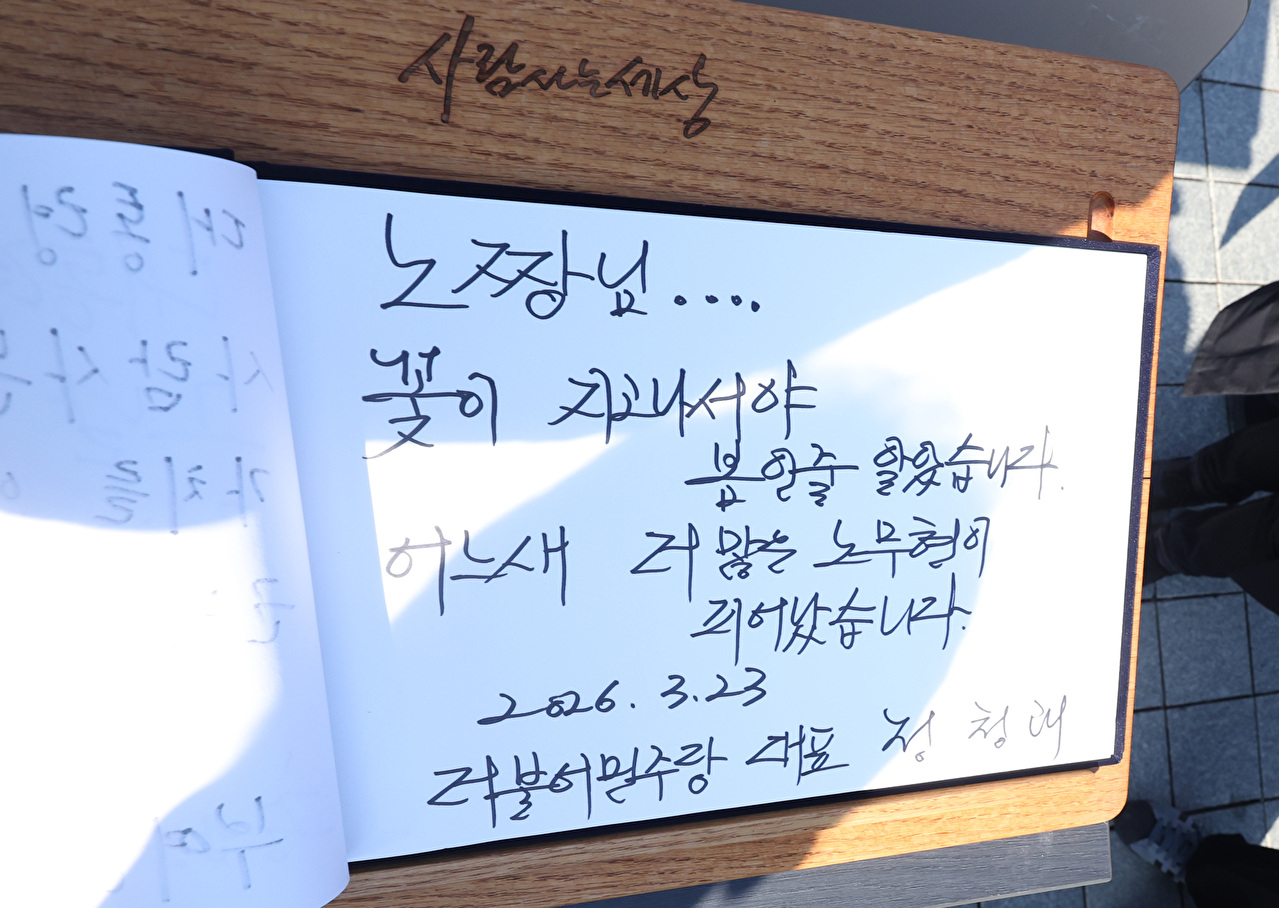 사람사는세상
노짱님....
꽃이 지고나서야
봄인줄 알았습니다.
어느새 더 많은 노무현이
피어났습니다.
2026. 3.23
더불어민주당 대표 정 청래